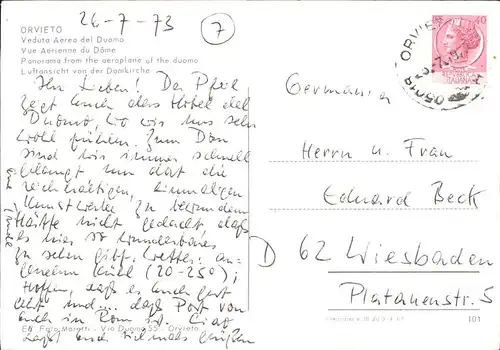 26-7-73
7
ORVIETO
Veduta Aerea del Duomo
Vue Aérienne du Dôme
Panorama from the aeroplane of the duomo
Luftansicht von der Domkirche
Ihr Lieben! Der Pfeil
zeigt Euch das Hotel del
Duomo, wo wir uns sehr
wohl fühlen. Zum Dom
sind wir immer schnell
gelangt um dort die
reichhaltigen, einmaligen
Kunstwerke zu bewundern.
Hätte nicht gedacht, daß
es hier so Wunderbares
zu sehen gibt. Wetter: an-
genehm kühl (20-25°);
Hoffen, daß es Euch gut
geht und ... daß Post von
Euch in Rom ist. Ciao
sagt und vielmals grüßen
Ed. Foto Moretti - Via Duomo 55 - Orvieto
ORVIETO
05018
40
ITALIANA
Germania
Herrn u. Frau
Eduard Beck
D 62 Wiesbaden
Platanenstr. 5
101